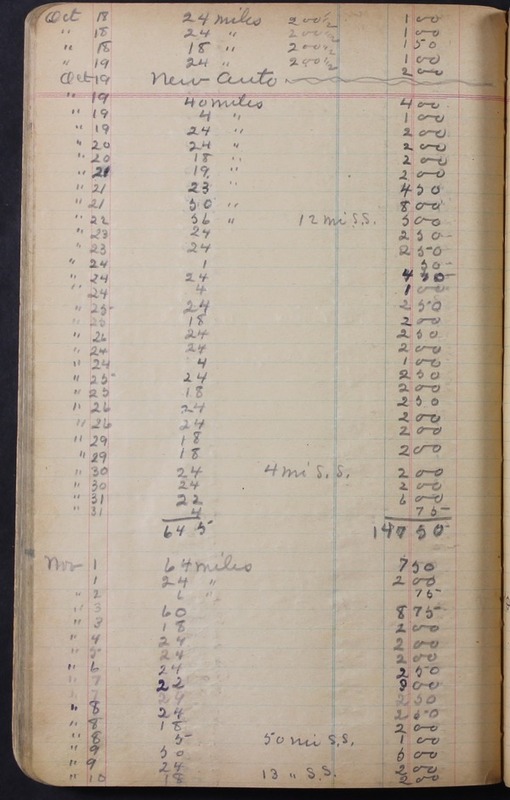 Oct 18 24 miles 200½ 1 00
" 18 24 " 200½ 1 00
" 18 18 " 200½ 1 50
" 19 24 " 200½ 1 00
Oct 19 New Auto 2 00
" 19 40 miles 4 00
" 19 4 " 1 00
" 19 24 " 2 00
" 20 24 " 2 00
" 20 18 " 2 00
" 21 19 " 2 00
" 21 23 " 4 50
" 21 50 " 8 00
" 22 56 " 12 mi S.S. 5 00
" 23 24 2 50
" 23 24 2 50
" 24 1 50
" 24 24 4 50
" 24 4 1 00
" 25 24 2 50
" 25 18 2 00
" 26 24 2 50
" 24 24 2 00
" 24 4 1 00
" 25 24 2 50
" 25 18 2 00
" 26 24 2 50
" 26 24 2 00
" 29 18 2 00
" 29 18 2 00
" 30 24 4 mi S.S. 2 00
" 30 24 2 00
" 31 22 6 00
" 31 4 75
645 147 50
Nov 1 64 miles 7 50
" 1 24 " 2 00
" 2 6 " 75
" 3 60 8 75
" 3 18 2 00
" 4 24 2 00
" 5 24 2 00
" 6 24 2 50
" 7 22 3 00
" 7 24 2 50
" 8 24 2 50
" 8 18 2 00
" 8 5 50 mi S.S. 1 00
" 9 50 5 00
" 9 24 2 00
" 10 18 13 " S.S. 2 00